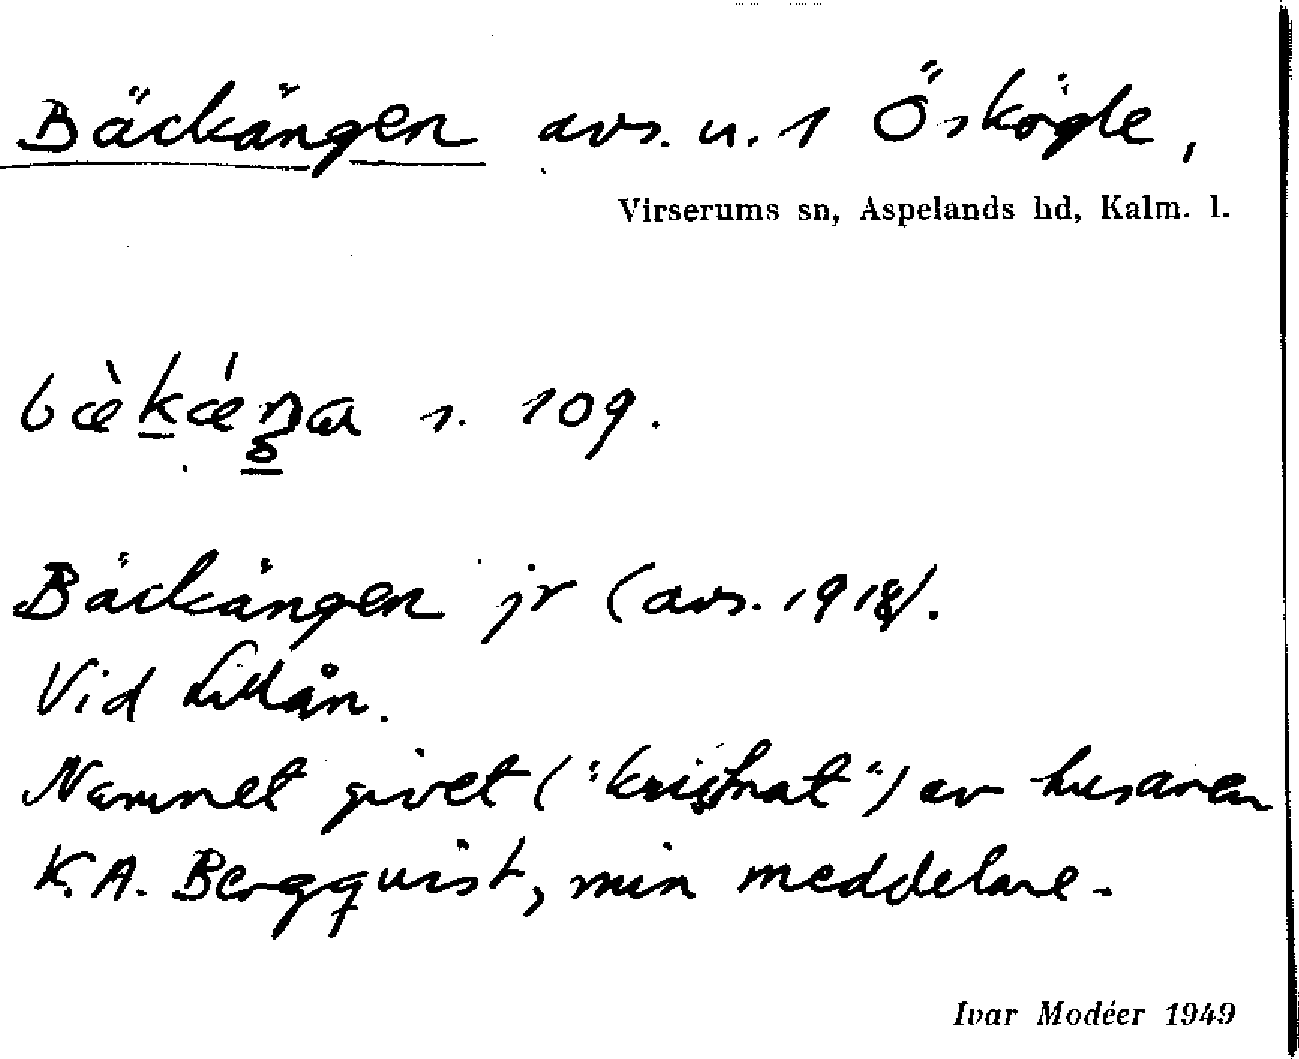 Bäckängen avs. u. 1 Öskögle,
Virserums sn, Aspelands hd, Kalm. l.
s. 109.
Bäckängen jr (avs. 1918).
Vid Lillån.
Namnet givet ("kristnat") av husaren
K.A. Bergquist, min meddelare.
Ivar Modéer 1949